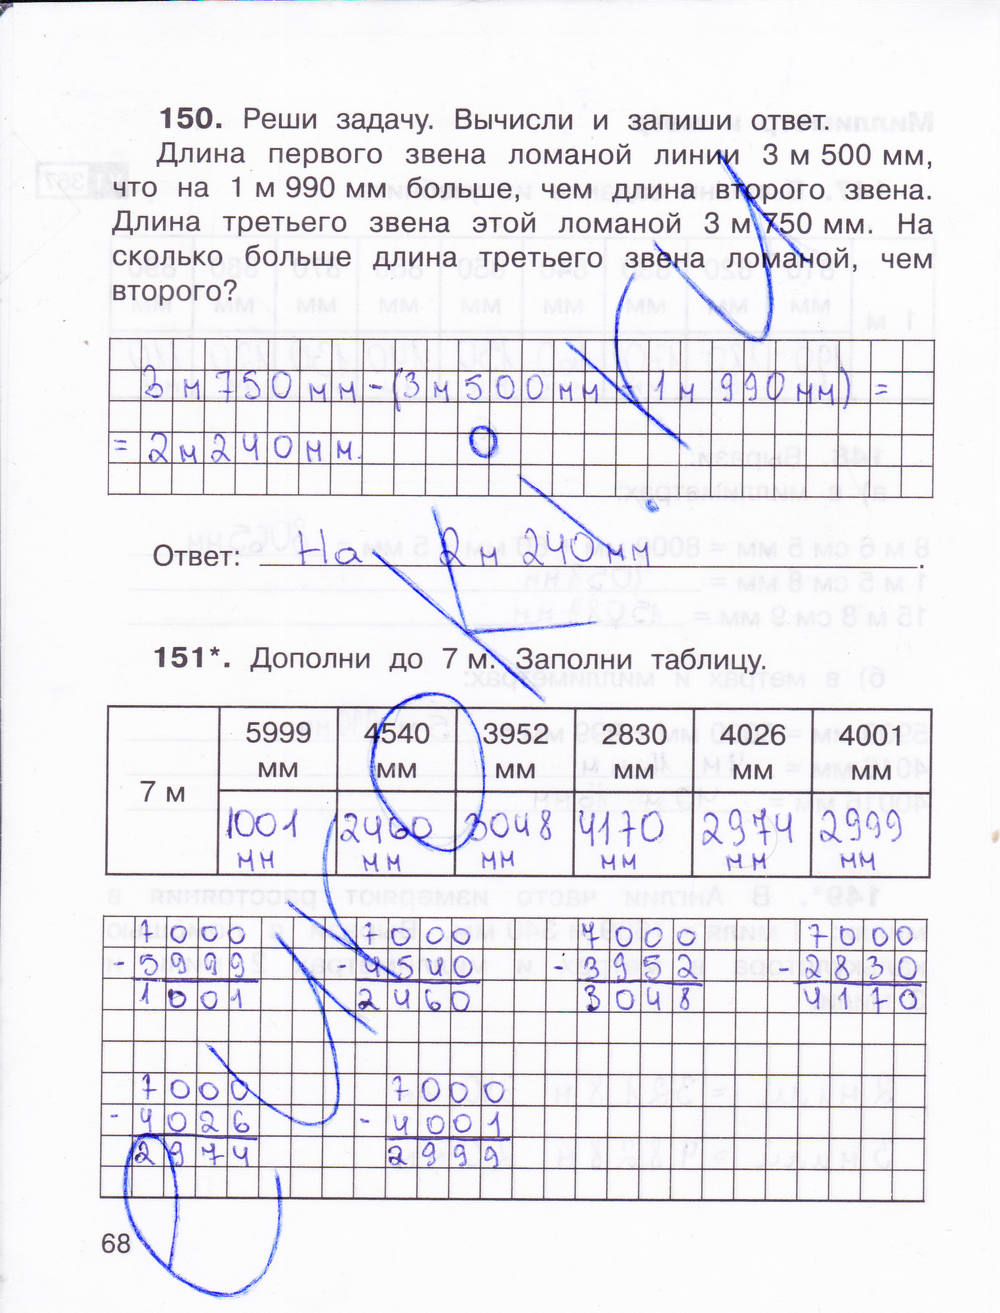 150. Реши задачу. Вычисли и запиши ответ.
Длина первого звена ломаной линии 3 м 500 мм,
что на 1 м 990 мм больше, чем длина второго звена.
Длина третьего звена этой ломаной 3 м 750 мм. На
сколько больше длина третьего звена ломаной, чем
второго?
3 м 750 мм - (3 м 500 мм - 1 м 990 мм) =
= 2 м 240 мм.
Ответ: На 2 м 240 мм.
151*. Дополни до 7 м. Заполни таблицу.
7 м
5999 мм 4540 мм 3952 мм 2830 мм 4026 мм 4001 мм
1001 мм 2460 мм 3048 мм 4170 мм 2974 мм 2999 мм
7000 7000 7000 7000
- 5999 - 4540 - 3952 - 2830
1001 2460 3048 4170
7000 7000
- 4026 - 4001
2974 2999
68